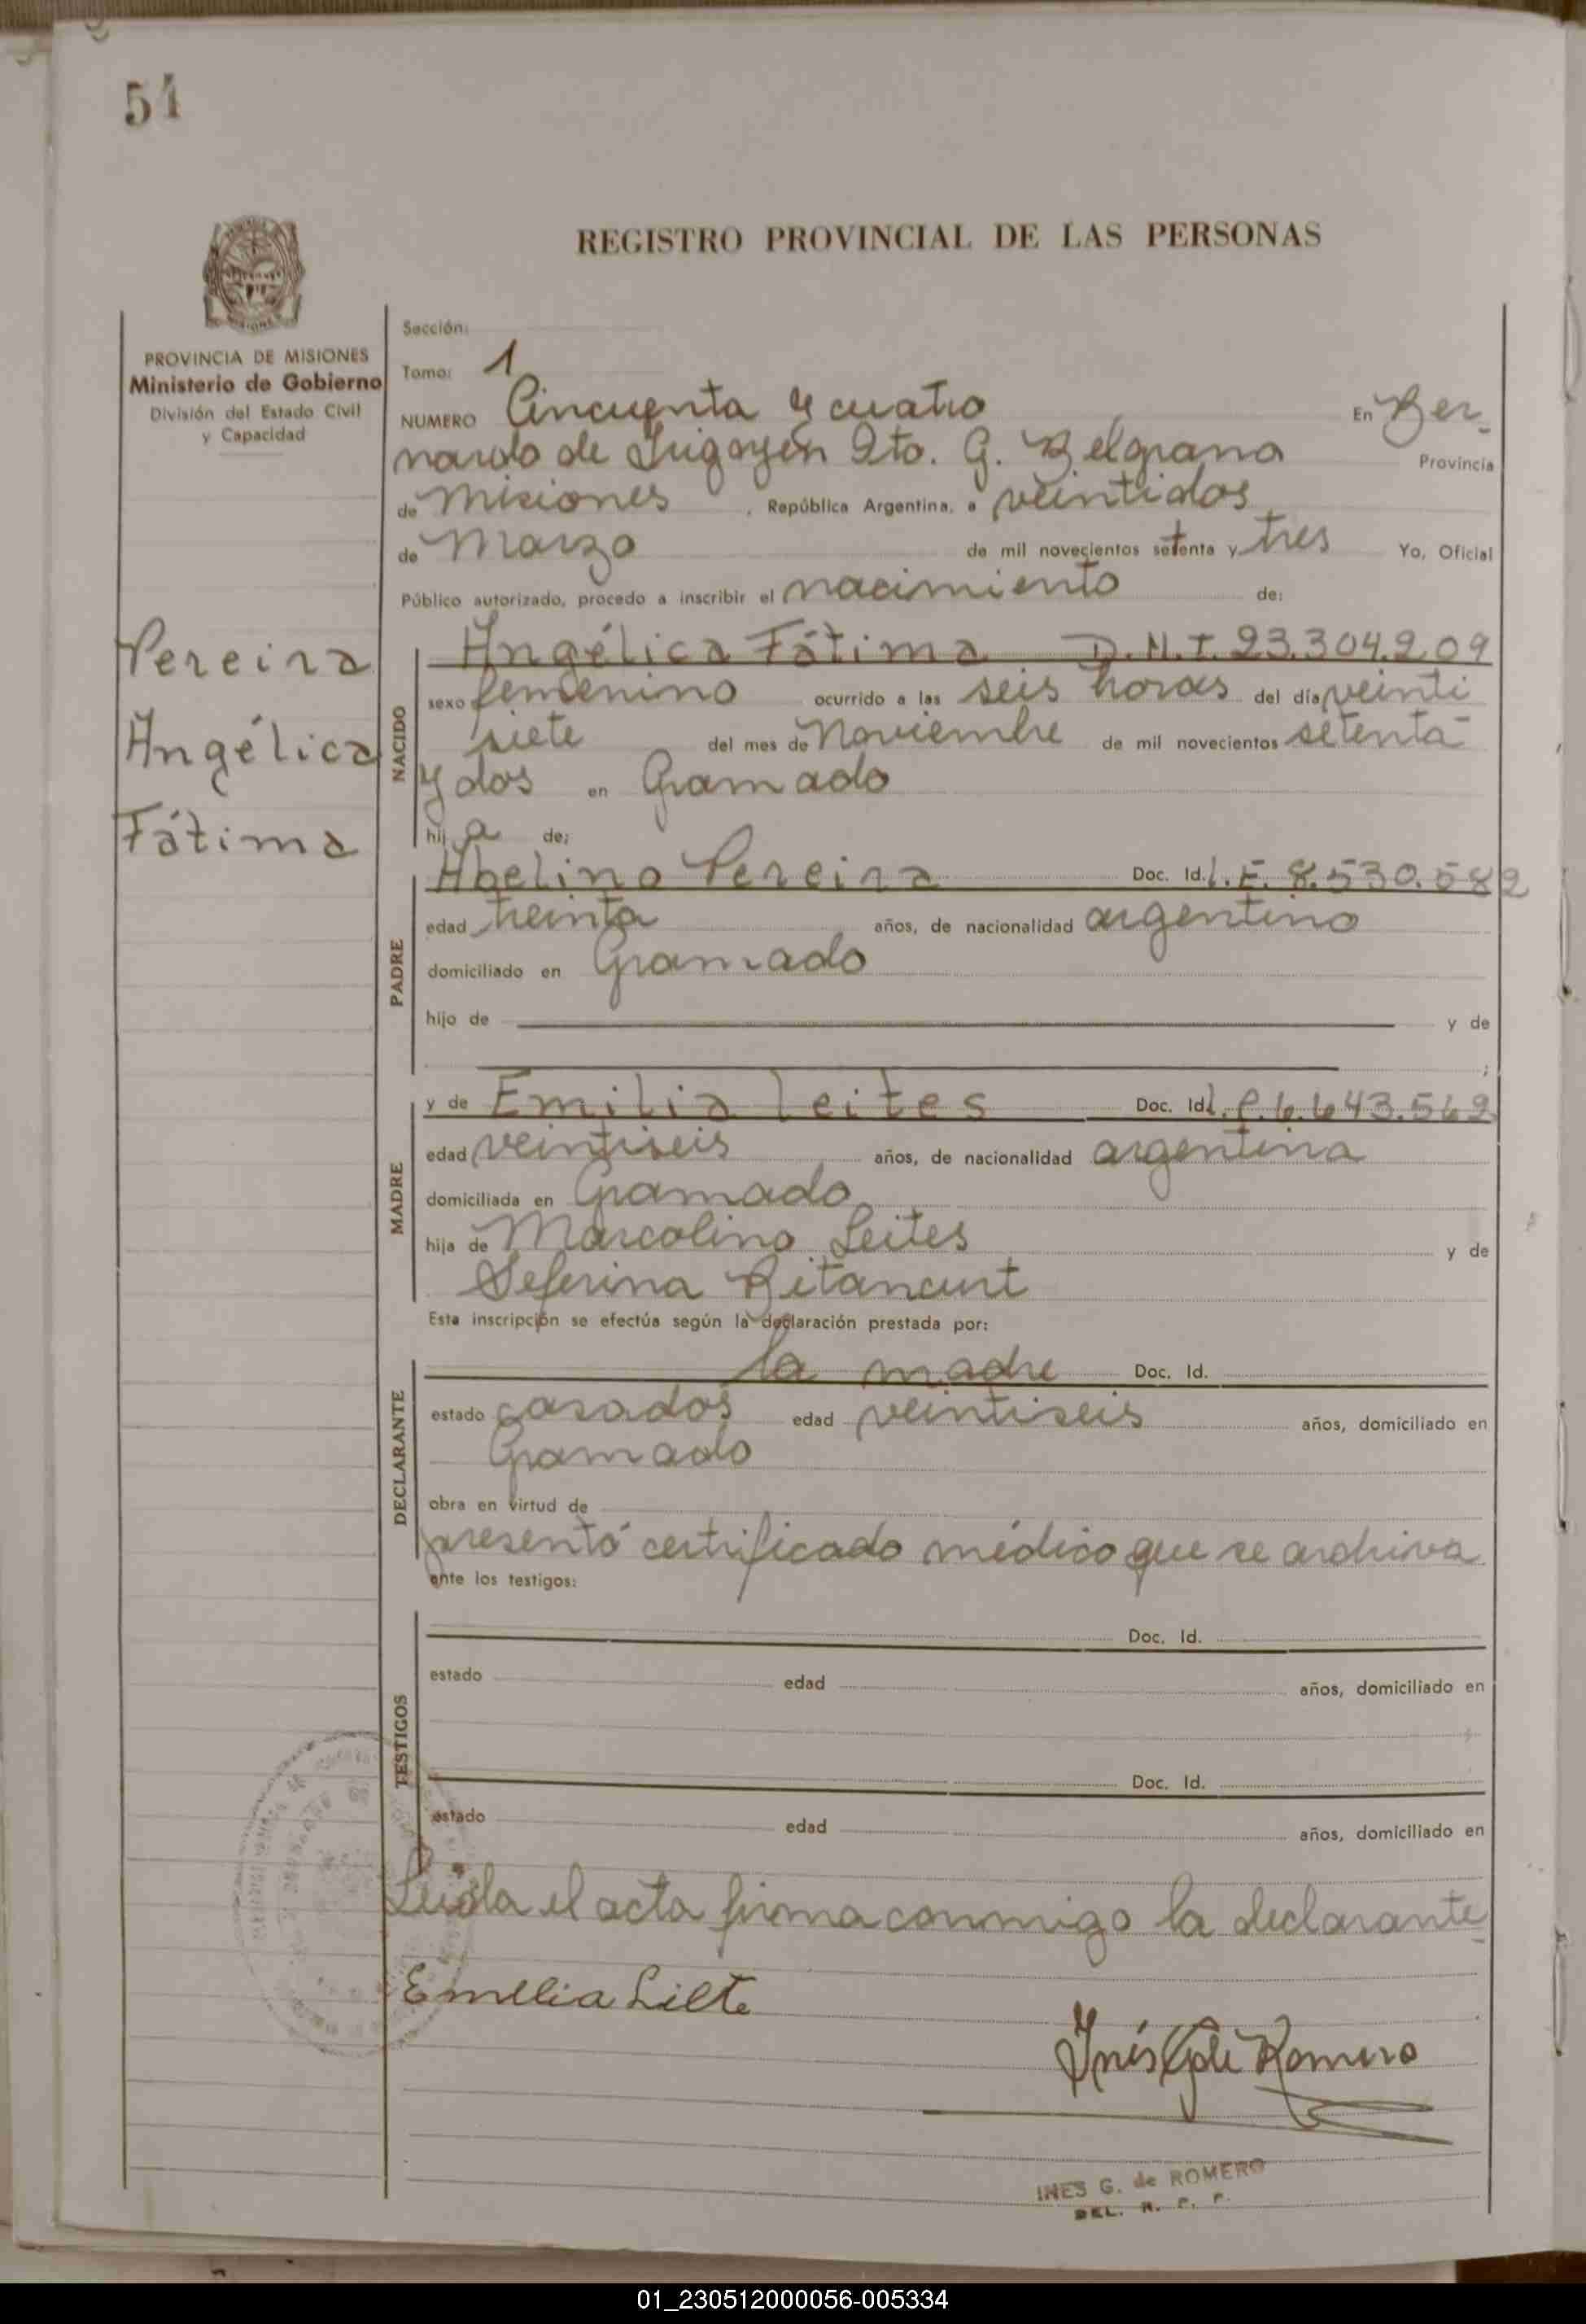 54
REGISTRO PROVINCIAL DE LAS PERSONAS
PROVINCIA DE MISIONES
Ministerio de Gobierno
División del Estado Civil
y Capacidad
Sección:
Tomo: 1
NUMERO Cincuenta y cuatro En Ber-
nardo de Irigoyen Dto. G. Belgrano Provincia
de Misiones, República Argentina, a veintidos
de Marzo de mil novecientos setenta y tres Yo, Oficial
Público autorizado, procedo a inscribir el nacimiento de:
Pereira
Angélica
Fátima
NACIDO
Angélica Fátima D.N.I. 23.304.209
sexo femenino ocurrido a las seis horas del día veinti
siete del mes de Noviembre de mil novecientos setenta
y dos en Gramado
hij a de:
PADRE
Abelino Pereira Doc. Id. L.E. 8.530.582
edad treinta años, de nacionalidad argentino
domiciliado en Gramado
hijo de y de
;
MADRE
y de Emilia Leites Doc. Id. L.C. 6.643.562
edad veintiseis años, de nacionalidad argentina
domiciliada en Gramado
hija de Marcolino Leites y de
Seferina Bitancurt
Esta inscripción se efectúa según la declaración prestada por:
DECLARANTE
la madre Doc. Id.
estado casados edad veintiseis años, domiciliado en
Gramado
obra en virtud de
presentó certificado médico que se archiva
ante los testigos:
TESTIGOS
Doc. Id.
estado edad años, domiciliado en
Doc. Id.
estado edad años, domiciliado en
Leida el acta firma conmigo la declarante
Emelia Liete
Inés G de Romero
INES G. de ROMERO
DEL. R. P. P.
01_230512000056-005334